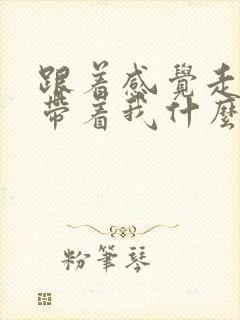 跟着感覺走
帶着我什麼
粉筆琴